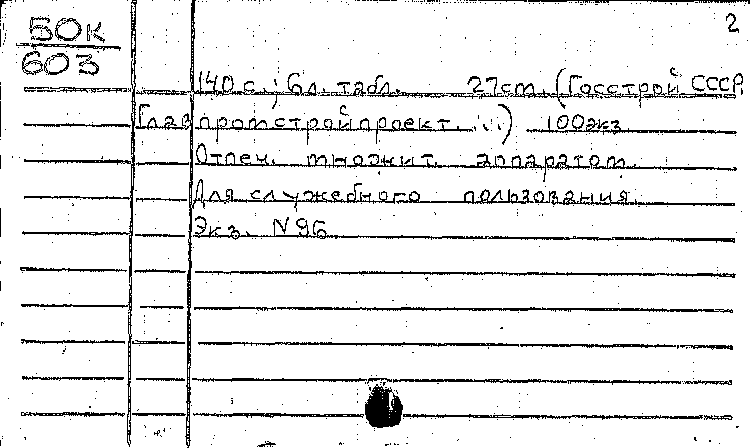 2
50к
603
140 с.; 6 л. табл. 27 см. (Госстрой СССР.
Главпромстройпроект. ...) 100 экз
Отпеч. множит. аппаратом.
Для служебного пользования.
Экз. N 96